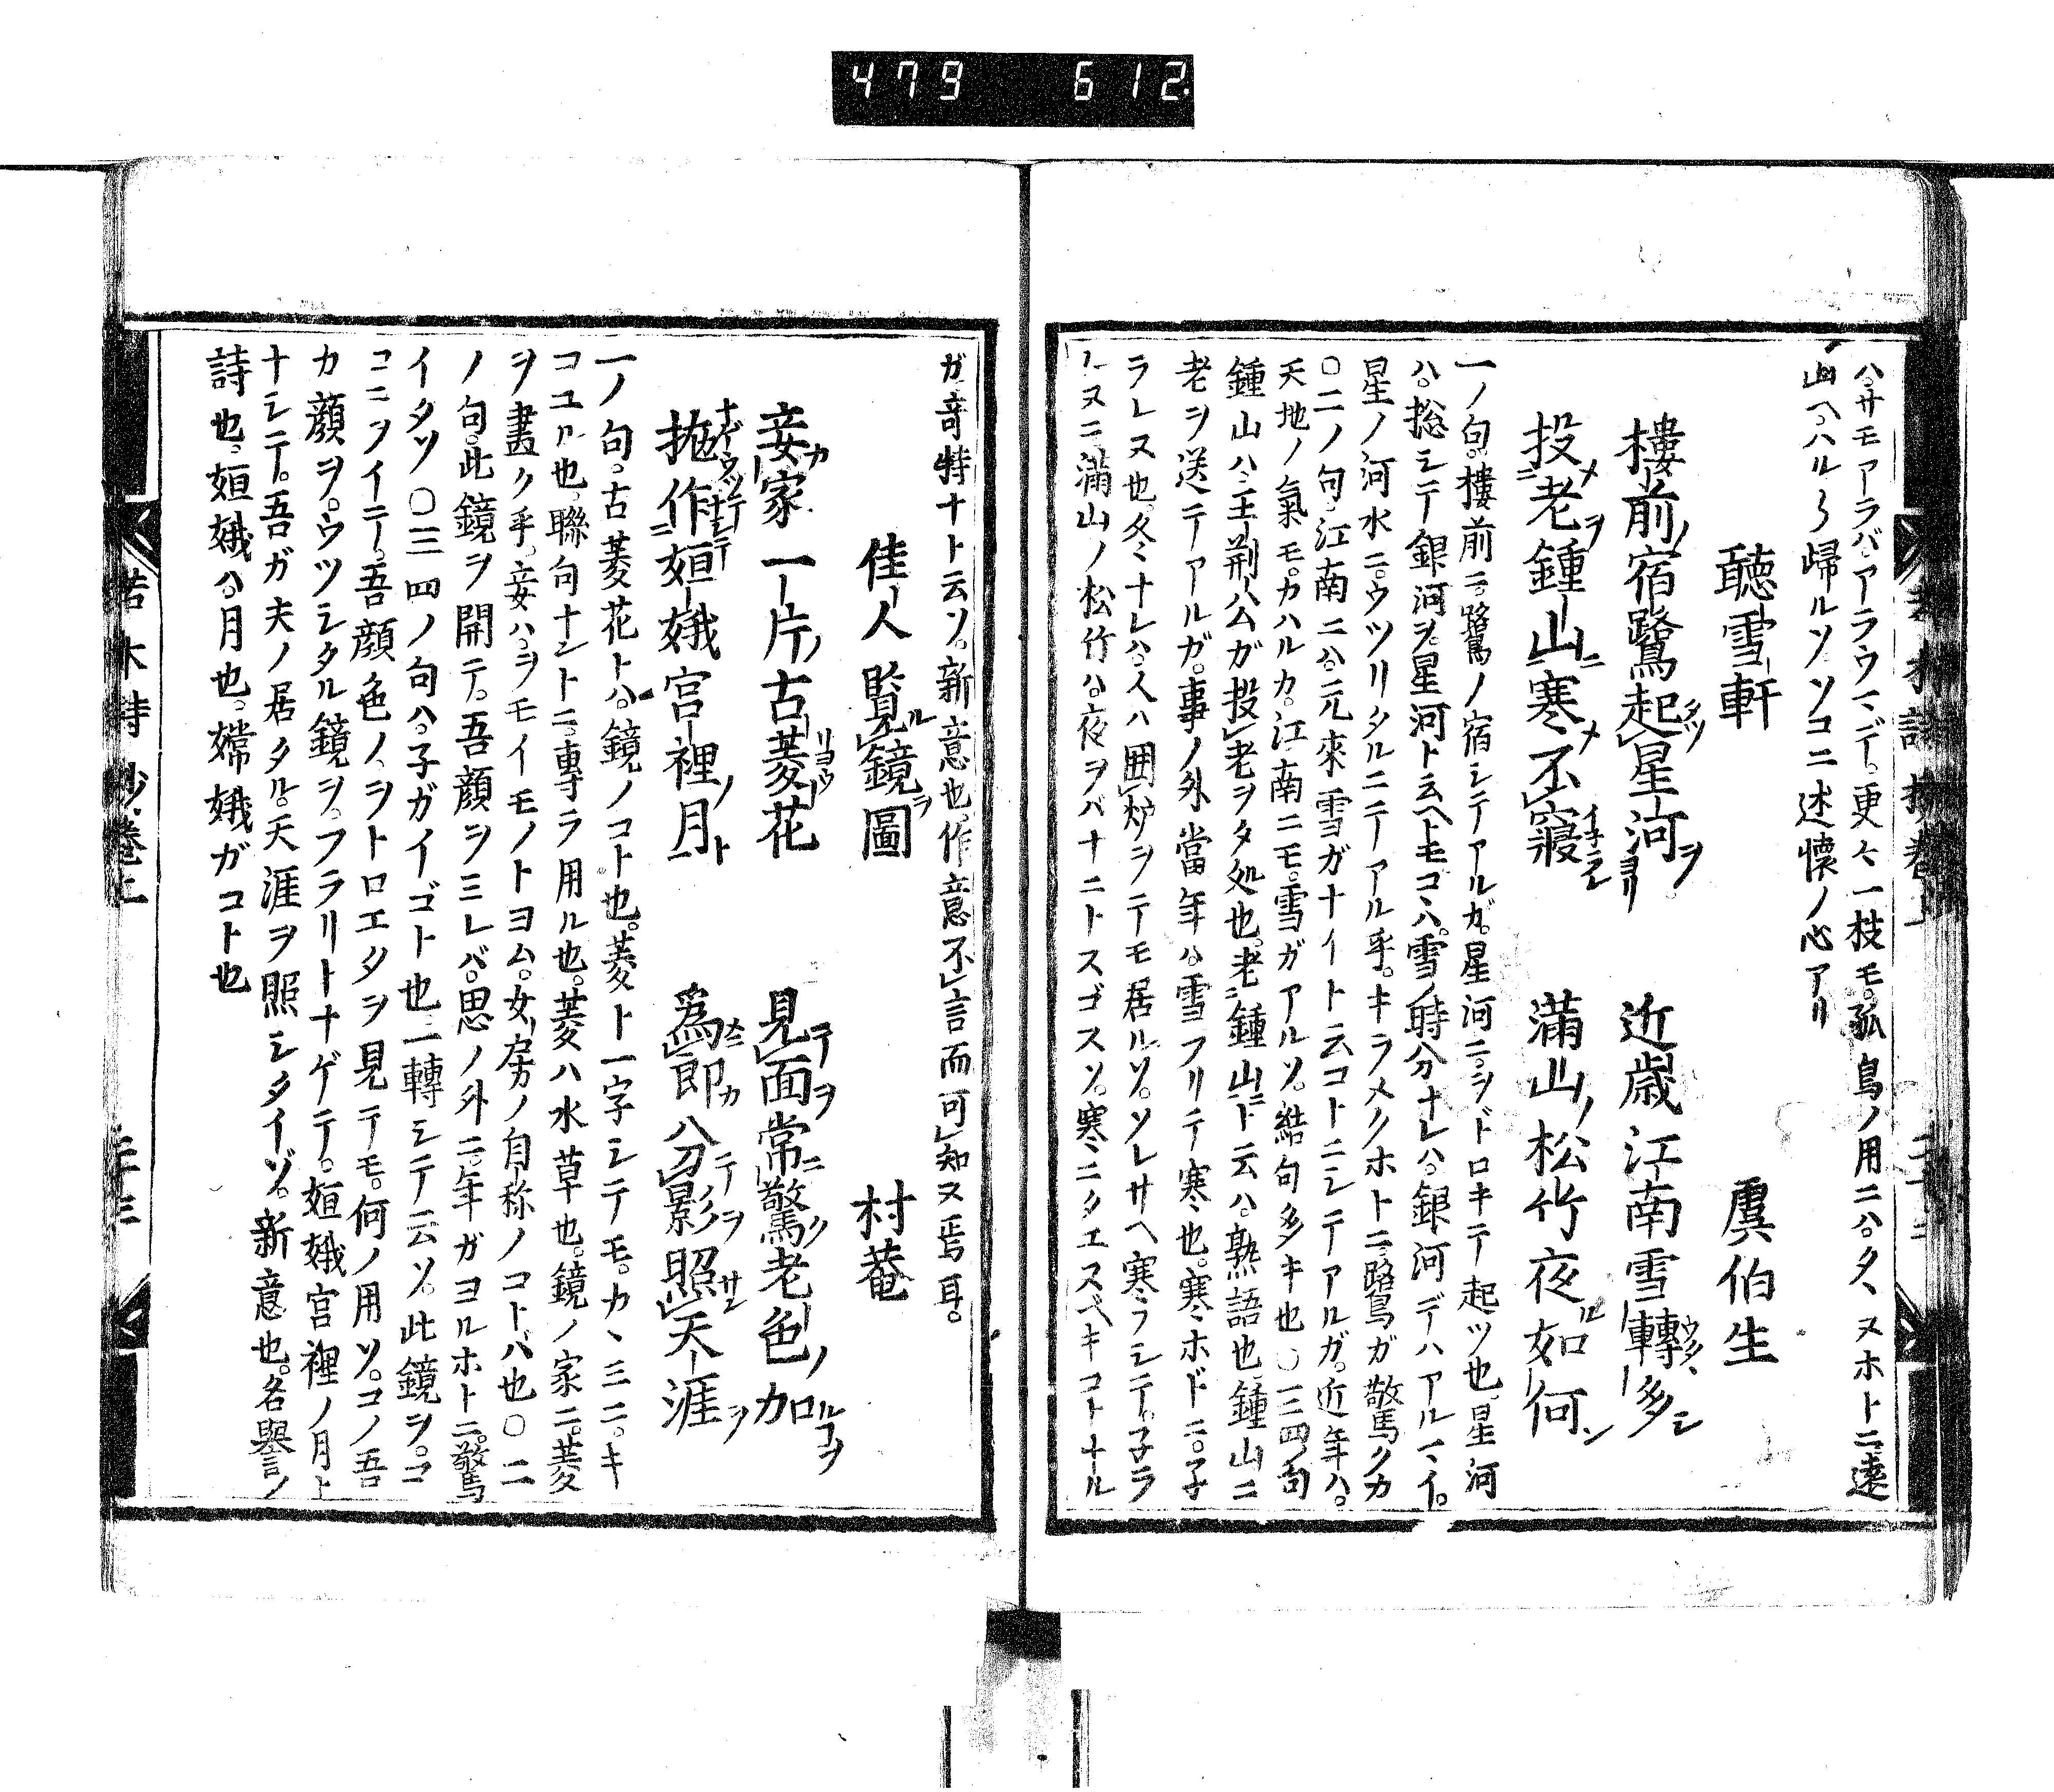 479 612
ハ。サモアラバアラウマデ。更々一枝モ。孤鳥ノ用ニハ。タヽヌホトニ遠
山ヘ。ハル〱帰ルソ。ソコニ述懐ノ心アリ
聽雪軒 虞伯生
樓前宿鷺起星河 近歳江南雪轉多
投老鍾山寒不寢 滿山松竹夜如何
一ノ句。樓前ニ。鷺ノ宿シテアルガ。星河ニ。ヲドロキテ起ツ也。星河
ハ。捴シテ銀河ヲ。星河ト云ヘトモコヽハ。雪ノ時分ナレハ。銀河デハアルマイ。
星ノ河水ニ。ウツリタルニテアル乎。キラメクホトニ。鷺ガ驚クカ
〇二ノ句。江南ニハ。元來雪ガナイト云コトニシテアルガ。近年ハ。
天地ノ氣モ。カハルカ。江南ニモ。雪ガアルソ。結句多キ也〇三四ノ句
鍾山ハ。王荆公ガ投老ヲタ処也。老鍾山ニト云ハ。熟語也。鍾山ニ
老ヲ送テアルガ。事ノ外當年ハ。雪フリテ寒也。寒ホドニ。子
ラレヌ也。冬ナレハ。人ハ囲炉ヲテモ居ルソ。ソレサヘ寒フシテ。子ラ
ルヌニ滿山ノ松竹ハ。夜ヲバナニトスゴスソ。寒ニクエスベキコトナル
ガ。奇特ナト云ソ。新意也。作意不言而可知ヌ焉耳。
佳人覧鏡圖 村菴
妾家一片古菱花 見面常驚老色加
抛作姮娥宮裡月 爲郎分影照天涯
一ノ句。古菱花トハ。鏡ノコト也。菱ト一字シテモ。カヽミニ。キ
コユル也。聯句ナントニ。專ラ用ル也。菱ハ水草也。鏡ノ家ニ。菱
ヲ畫ク乎。妾ハ。ヲモイモノトヨム。女房ノ自称ノコトバ也〇二
ノ句。此鏡ヲ開テ。吾顔ヲミレバ。思ノ外ニ。年ガヨルホトニ。驚
イタソ〇三四ノ句ハ。子ガイゴト也。一轉シテ云ソ。此鏡ヲ。コ
コニヲイテ。吾顔色ノヽヲトロエタヲ見テモ。何ノ用ソ。コノ吾
カ顔ヲ。ウツシタル鏡ヲ。フラリトナゲテ。姮娥宮裡ノ月ト
ナシテ。吾ガ夫ノ居タル。天涯ヲ照シタイゾ。新意也。名譽ノ
詩也。姮娥ハ。月也。嫦娥ガコト也